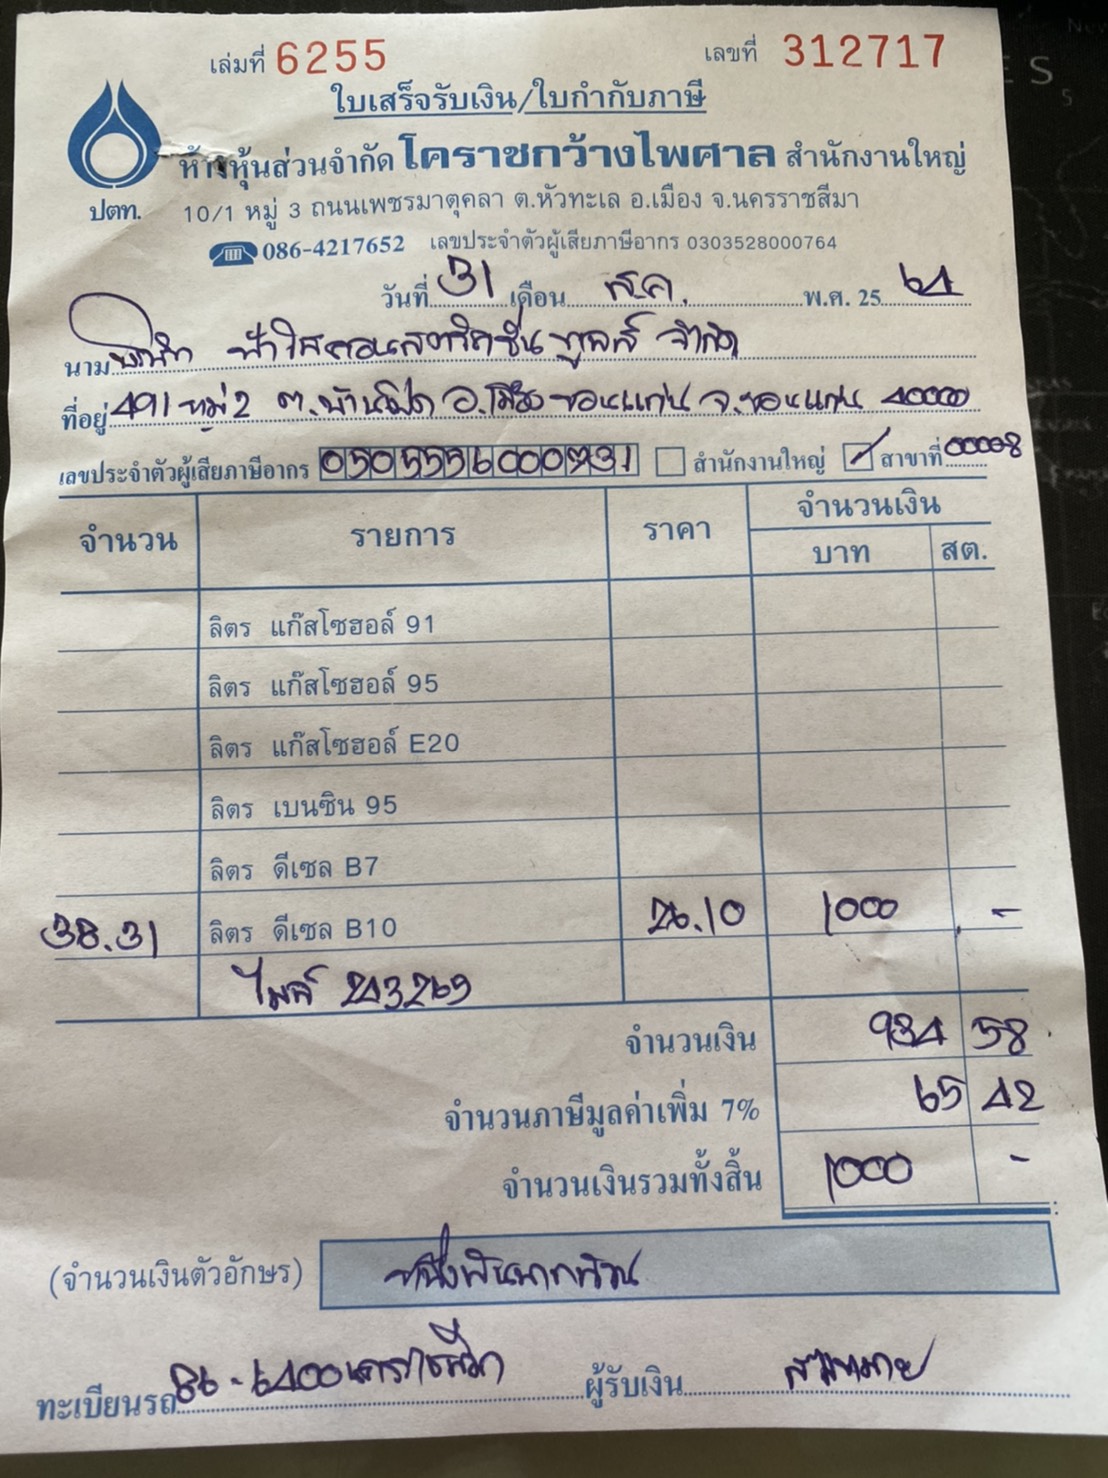 เล่มที่ 6255 เลขที่ 312717
ใบเสร็จรับเงิน/ใบกำกับภาษี
ห้างหุ้นส่วนจำกัด โคราชกว้างไพศาล สำนักงานใหญ่
ปตท. 10/1 หมู่ 3 ถนนเพชรมาตุคลา ต.หัวทะเล อ.เมือง จ.นครราชสีมา
086-4217652 เลขประจำตัวผู้เสียภาษีอากร 0303528000764
วันที่ 31 เดือน ส.ค. พ.ศ. 25 64
นาม บริษัท ฟ้าใสคอนสตรัคชั่น ทูลส์ จำกัด
ที่อยู่ 491 หมู่ 2 ต.บ้านเป็ด อ.เมืองขอนแก่น จ.ขอนแก่น 40000
เลขประจำตัวผู้เสียภาษีอากร 0505556000731 สำนักงานใหญ่ / สาขาที่ 00008
จำนวน รายการ ราคา จำนวนเงิน
บาท สต.
ลิตร แก๊สโซฮอล์ 91
ลิตร แก๊สโซฮอล์ 95
ลิตร แก๊สโซฮอล์ E20
ลิตร เบนซิน 95
ลิตร ดีเซล B7
38.31 ลิตร ดีเซล B10 26.10 1000 -
ไมล์ 243269
จำนวนเงิน 934 58
จำนวนภาษีมูลค่าเพิ่ม 7% 65 42
จำนวนเงินรวมทั้งสิ้น 1000 -
(จำนวนเงินตัวอักษร) หนึ่งพันบาทถ้วน
ทะเบียนรถ 86-6400 นครราชสีมา ผู้รับเงิน